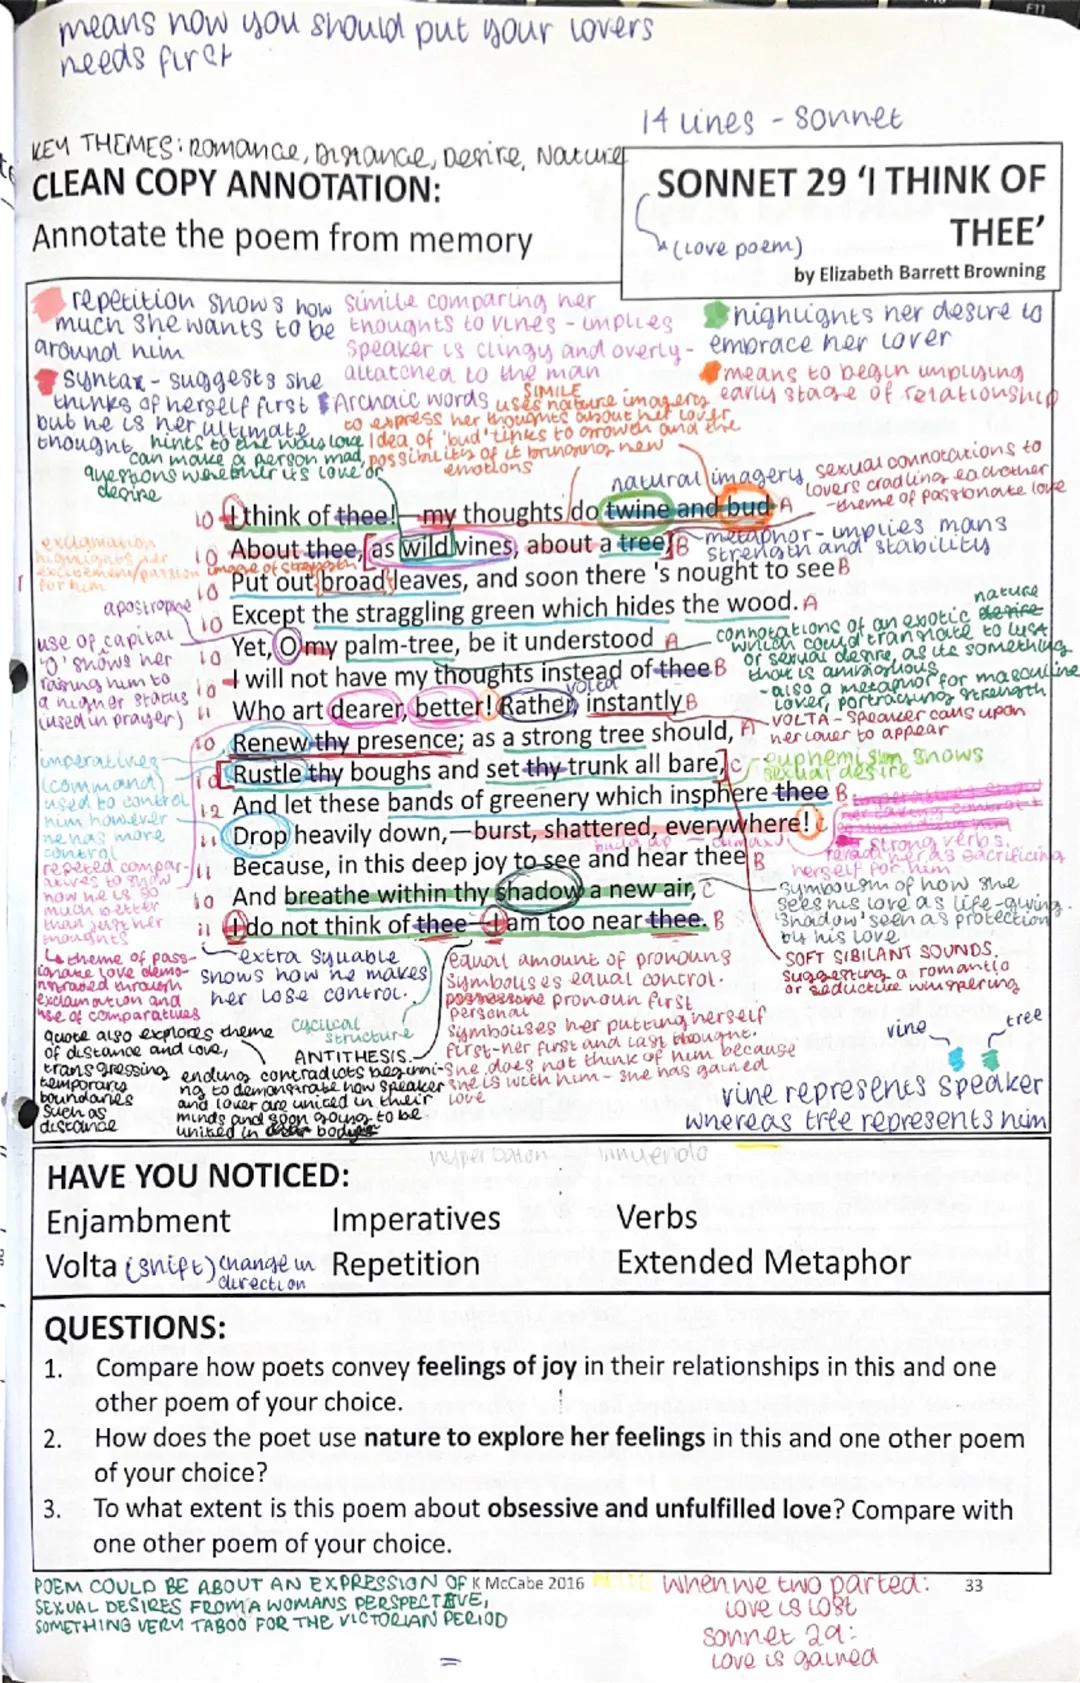 F11
means now you should put your lovers
needs first
14 lines - sonnet
KEY THEMES: Romance, Distance, Desire, Nature
CLEAN COPY ANNOTATION:
Annotate the poem from memory
SONNET 29 'I THINK OF
THEE'
(love poem)
by Elizabeth Barrett Browning
repetition shows how
much she wants to be
around him
simile comparing her
thoughts to vines - implies
speaker is clingy and overly-
attatched to the man
highlights her desire to
embrace her lover
syntax - suggests she
thinks of herself first
but he is her ultimate
thought
means to begin implying
early stage of relationship
Archaic words
SIMILE
uses nature imagery
to express her thoughts about her lover
Idea of 'bud' links to growth and the
possibilities of it bringing new
emotions
hints to the way love
can make a person mad,
questions whether it is love or
desire
natural imagery
sexual connotations to
lovers cradling eachother
-theme of passionate love
10 I think of thee!—my thoughts do twine and bud A
10 About thee, [as wild vines, about a tree,] B
metaphor - implies mans
strength and stability
exclamation
highlights her
excitement/passion
for him
image of strength
10 Put out broad leaves, and soon there 's nought to see B
10 Except the straggling green which hides the wood. A
apostrophe
10 Yet, O my palm-tree, be it understood A
10 I will not have my thoughts instead of thee B
volta
11 Who art dearer, better! Rather, instantly B
use of capital
'O' shows her
raising him to
a higher status
(used in prayer)
nature
connotations of an exotic desire
which could translate to lust
or sexual desire, as its something
that is ambiguous
-also a metaphor for masculine
lover, portraying strength
VOLTA - speaker calls upon
her lover to appear
10 Renew thy presence; as a strong tree should, A
10 [Rustle thy boughs and set thy trunk all bare,] C
euphemism shows
sexual desire
12 And let these bands of greenery which insphere thee B
11 Drop heavily down,—burst, shattered, everywhere! C
build up - climax
11 Because, in this deep joy to see and hear thee B
10 And breathe within thy shadow a new air, C
11 I do not think of thee—I am too near thee. B
imperatives
(command)
used to control
him however
he has more
control
repeted compar-
atives to show
how he is so
much better
than just her
thoughts
strong verbs.
her as sacrificing
herself for him
symbolism of how she
sees his love as life-giving.
'Shadow' seen as protection
by his love
SOFT SIBILANT SOUNDS.
suggesting a romantic
or seductive whispering
theme of pass-
ionate love demo-
nstrated through
exclamation and
use of comparatives
extra syllable
shows how he makes
her lose control.
equal amount of pronouns
symbolises equal control.
possessive pronoun first
personal
symbolises her putting herself
first - her first and last thought.
she does not think of him because
she is with him - she has gained
love
cyclical
structure
quote also explores theme
of distance and love,
transgressing
temporary
boundaries
such as
distance
ANTITHESIS.
ending contradicts beginni-
ng to demonstrate how speaker
and lover are united in their
minds and soon going to be
united in bodies
vine
tree
vine represents speaker
whereas tree represents him
hyperbaton innuendo
HAVE YOU NOTICED:
Enjambment Imperatives Verbs
Volta (shift) change in direction Repetition Extended Metaphor
QUESTIONS:
1. Compare how poets convey feelings of joy in their relationships in this and one
other poem of your choice.
2. How does the poet use nature to explore her feelings in this and one other poem
of your choice?
3. To what extent is this poem about obsessive and unfulfilled love? Compare with
one other poem of your choice.
POEM COULD BE ABOUT AN EXPRESSION OF
SEXUAL DESIRES FROM A WOMANS PERSPECTIVE,
SOMETHING VERY TABOO FOR THE VICTORIAN PERIOD
K McCabe 2016
33
When we two parted:
love is lost
sonnet 29:
love is gained